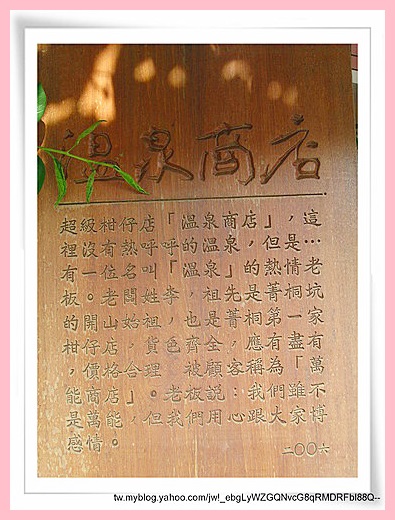 溫泉商店
超級柑仔店「溫泉商店」，這
裡沒有熱呼呼的溫泉，但是…
有一位名叫「溫泉」的熱情老
板。老闆姓李，祖先是菁桐坑
的開山始祖，也是菁桐第一家
柑仔店，貨色齊全，應有盡有
，價格合理。被顧客稱為「萬
能店」。老板說：我們雖不
是萬能。但我們用心跟大家博
感情。
二〇〇六
tw.myblog.yahoo.com/jw!_ebgLyWZGQNvcG8qRMDRFbI88Q--